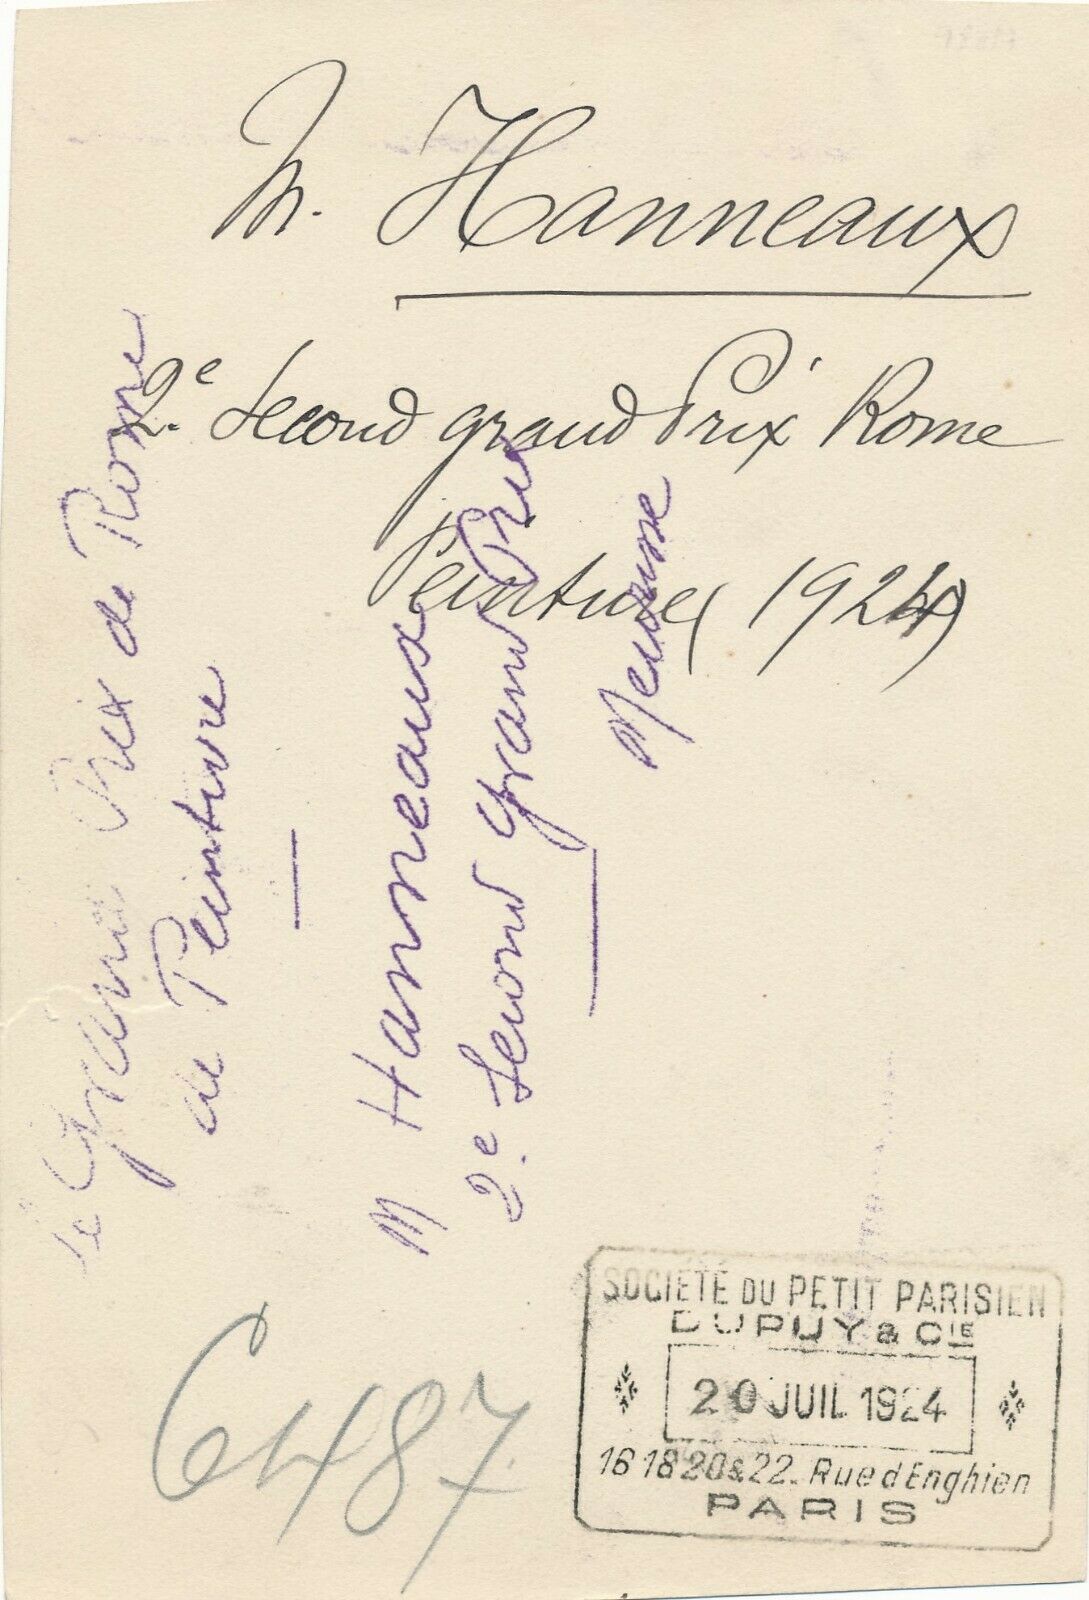 M. Hanneaux
2e Second grand Prix Rome
Peinture (1924)
le Grand Prix de Rome
de Peinture
M Hanneaux
2e Second Grand Prix
6487
SOCIÉTÉ DU PETIT PARISIEN
DUPUY & CIE
20 JUIL 1924
16 18 20 & 22. Rue d'Enghien
PARIS